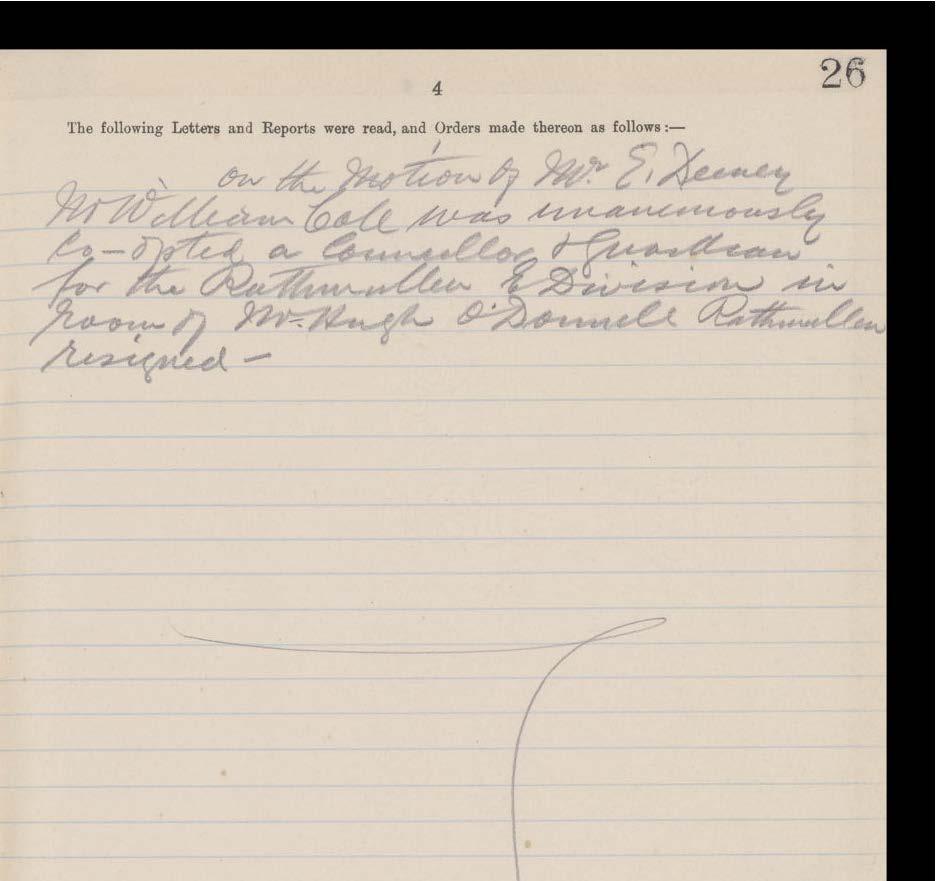 26
4
The following Letters and Reports were read, and Orders made thereon as follows :—
on the Motion of Mr. E. Deeney
Mr William Cole was unanimously
Co-opted a Councillor & Guardian
for the Rathmullen E Division in
room of Mr. Hugh O'Donnell Rathmullen
resigned —